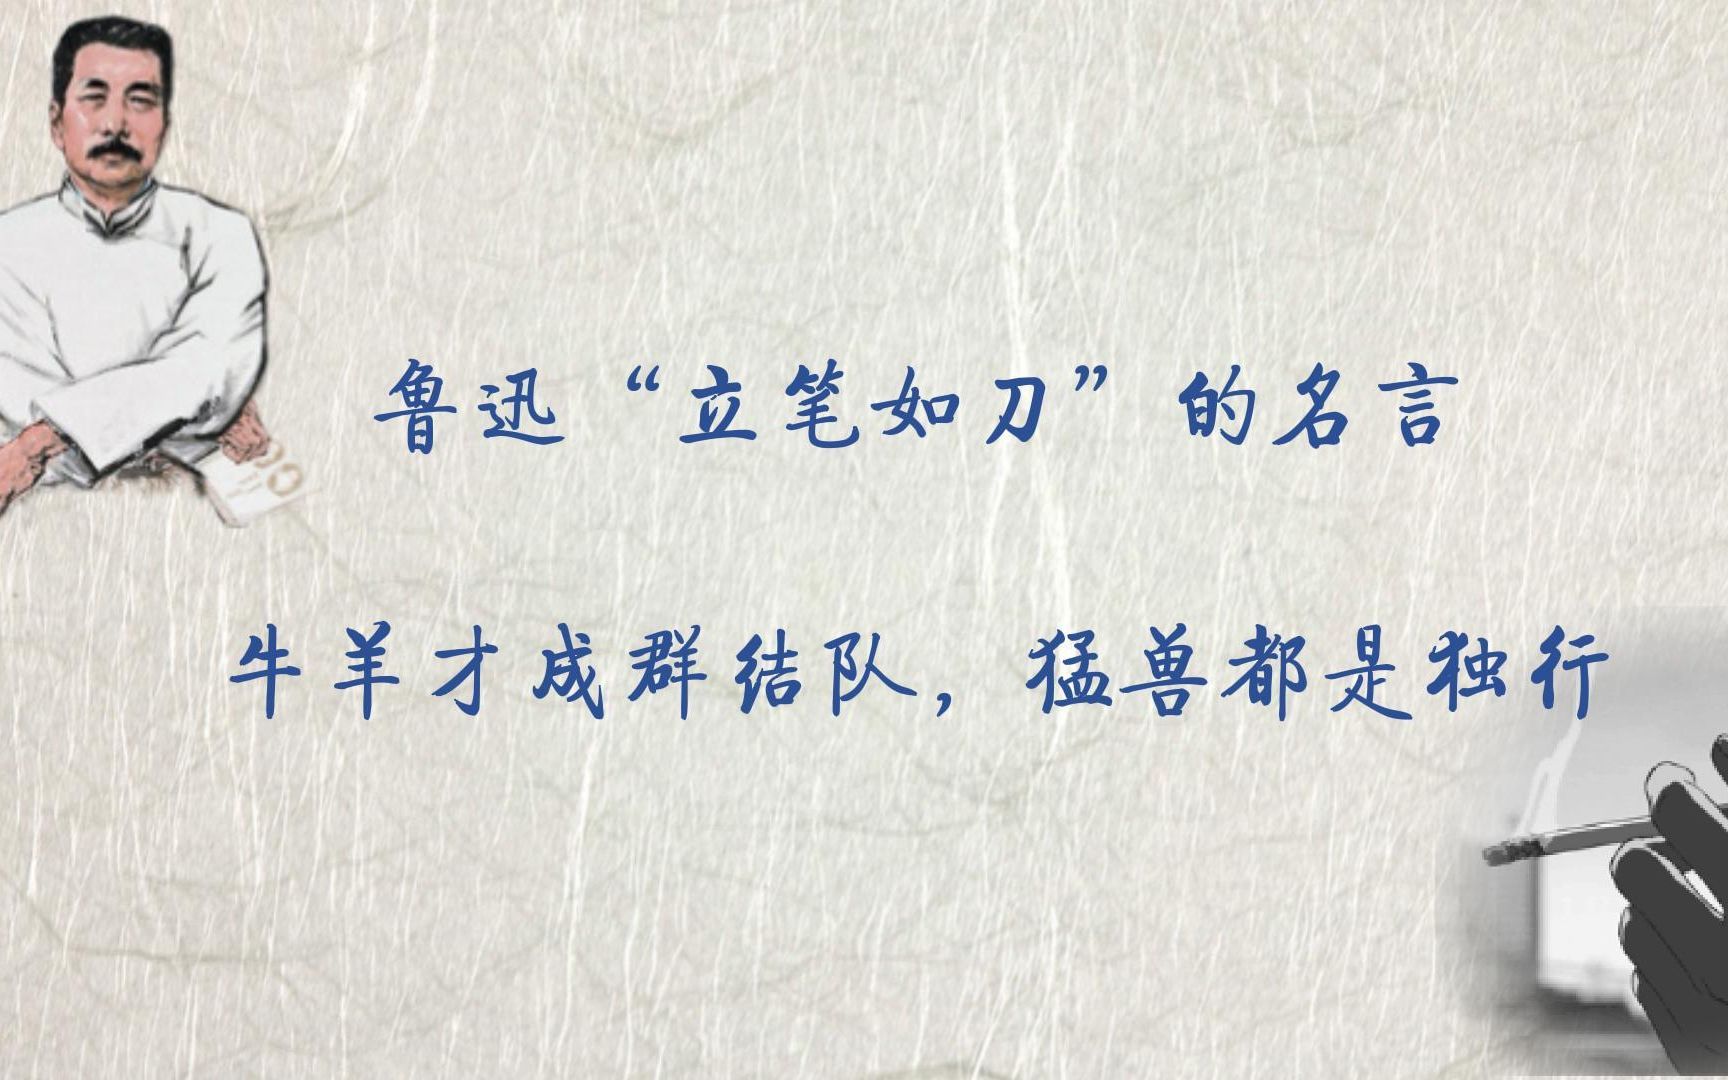 鲁迅“立笔如刀”的名言
牛羊才成群结队，猛兽都是独行